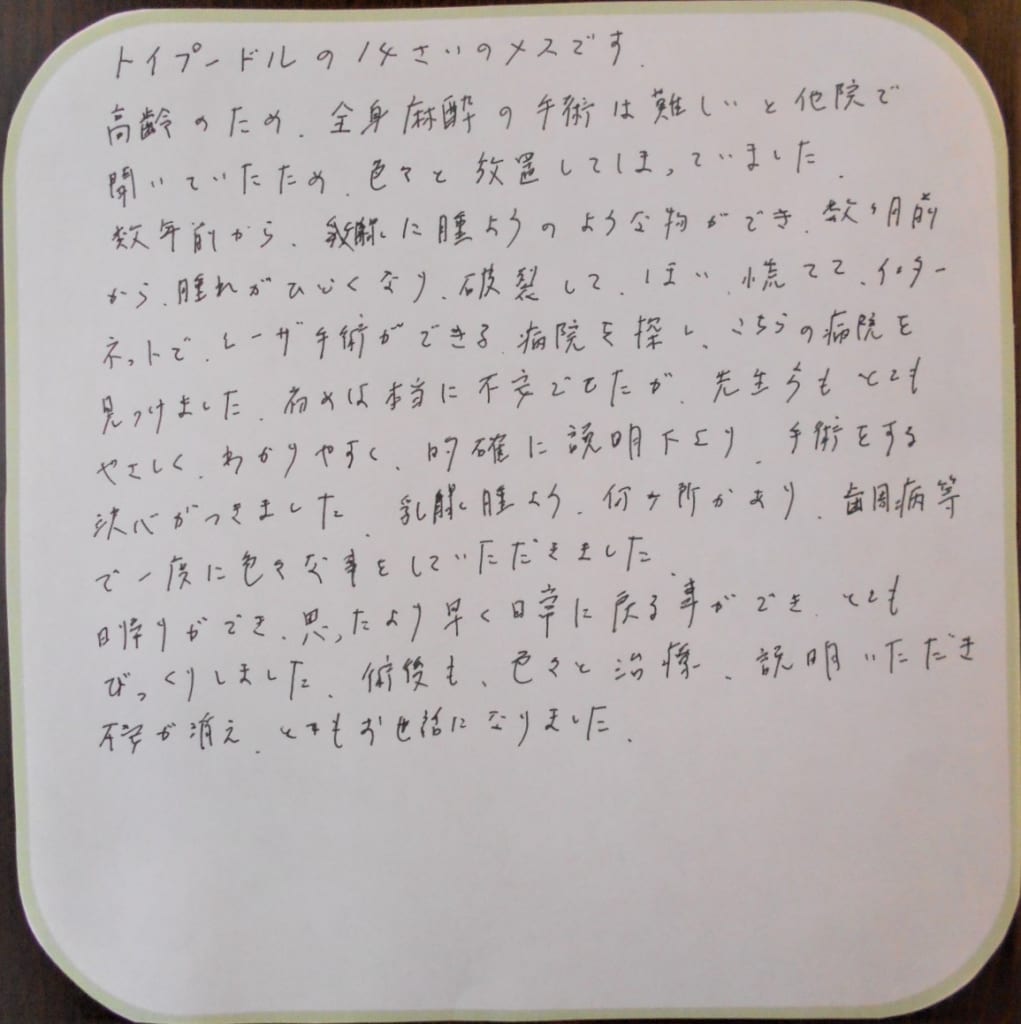 トイプードルの14さいのメスです.
高齢のため、全身麻酔の手術は難しいと他院で
聞いていたため、色々と放置してしまっていました.
数年前から、乳腺に腫ようのような物ができ、数ヶ月前
から、腫れがひどくなり、破裂して、しまい、慌てて、インター
ネットで、レーザ手術ができる病院を探し、こちらの病院を
見つけました. 初めは本当に不安でしたが、先生方もとても
やさしく、わかりやすく、的確に説明下さり、手術をする
決心がつきました. 乳腺腫よう、何ヶ所かあり、歯周病等
で一度に色々な事をしていただきました.
日帰りができ、思ったより早く日常に戻る事ができ、とても
びっくりしました. 術後も、色々と治療、説明いただき
不安が消え、とてもお世話になりました.